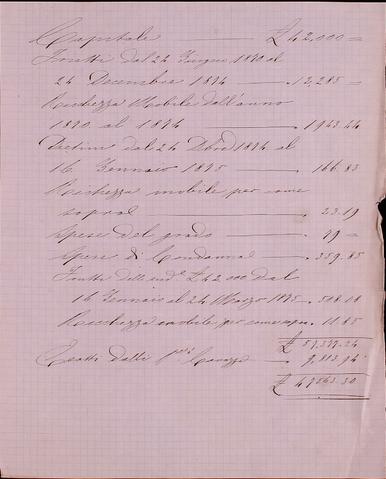 Capitale £ 42,000 =
Frutti dal 24 Giugno 1890 al
24 Decembre 1894 . 12,285 =
Ricchezza Mobile dall'anno
1890 al 1894 . 1943.44
Decime dal 24 Dbre 1894 al
16 Gennaio 1895 . 166.83
Ricchezza mobile per come
sopra 23.19
Spese del grado 99 =
Spese di Condanna . 359.85
Frutti delle £ 42000 dal
16 Gennaio al 24 Marzo 1895 . 508.08
Ricchezza mobile per come sopra . 11.85
£ 57,377.24
Tratti dalli
£ 47563.30